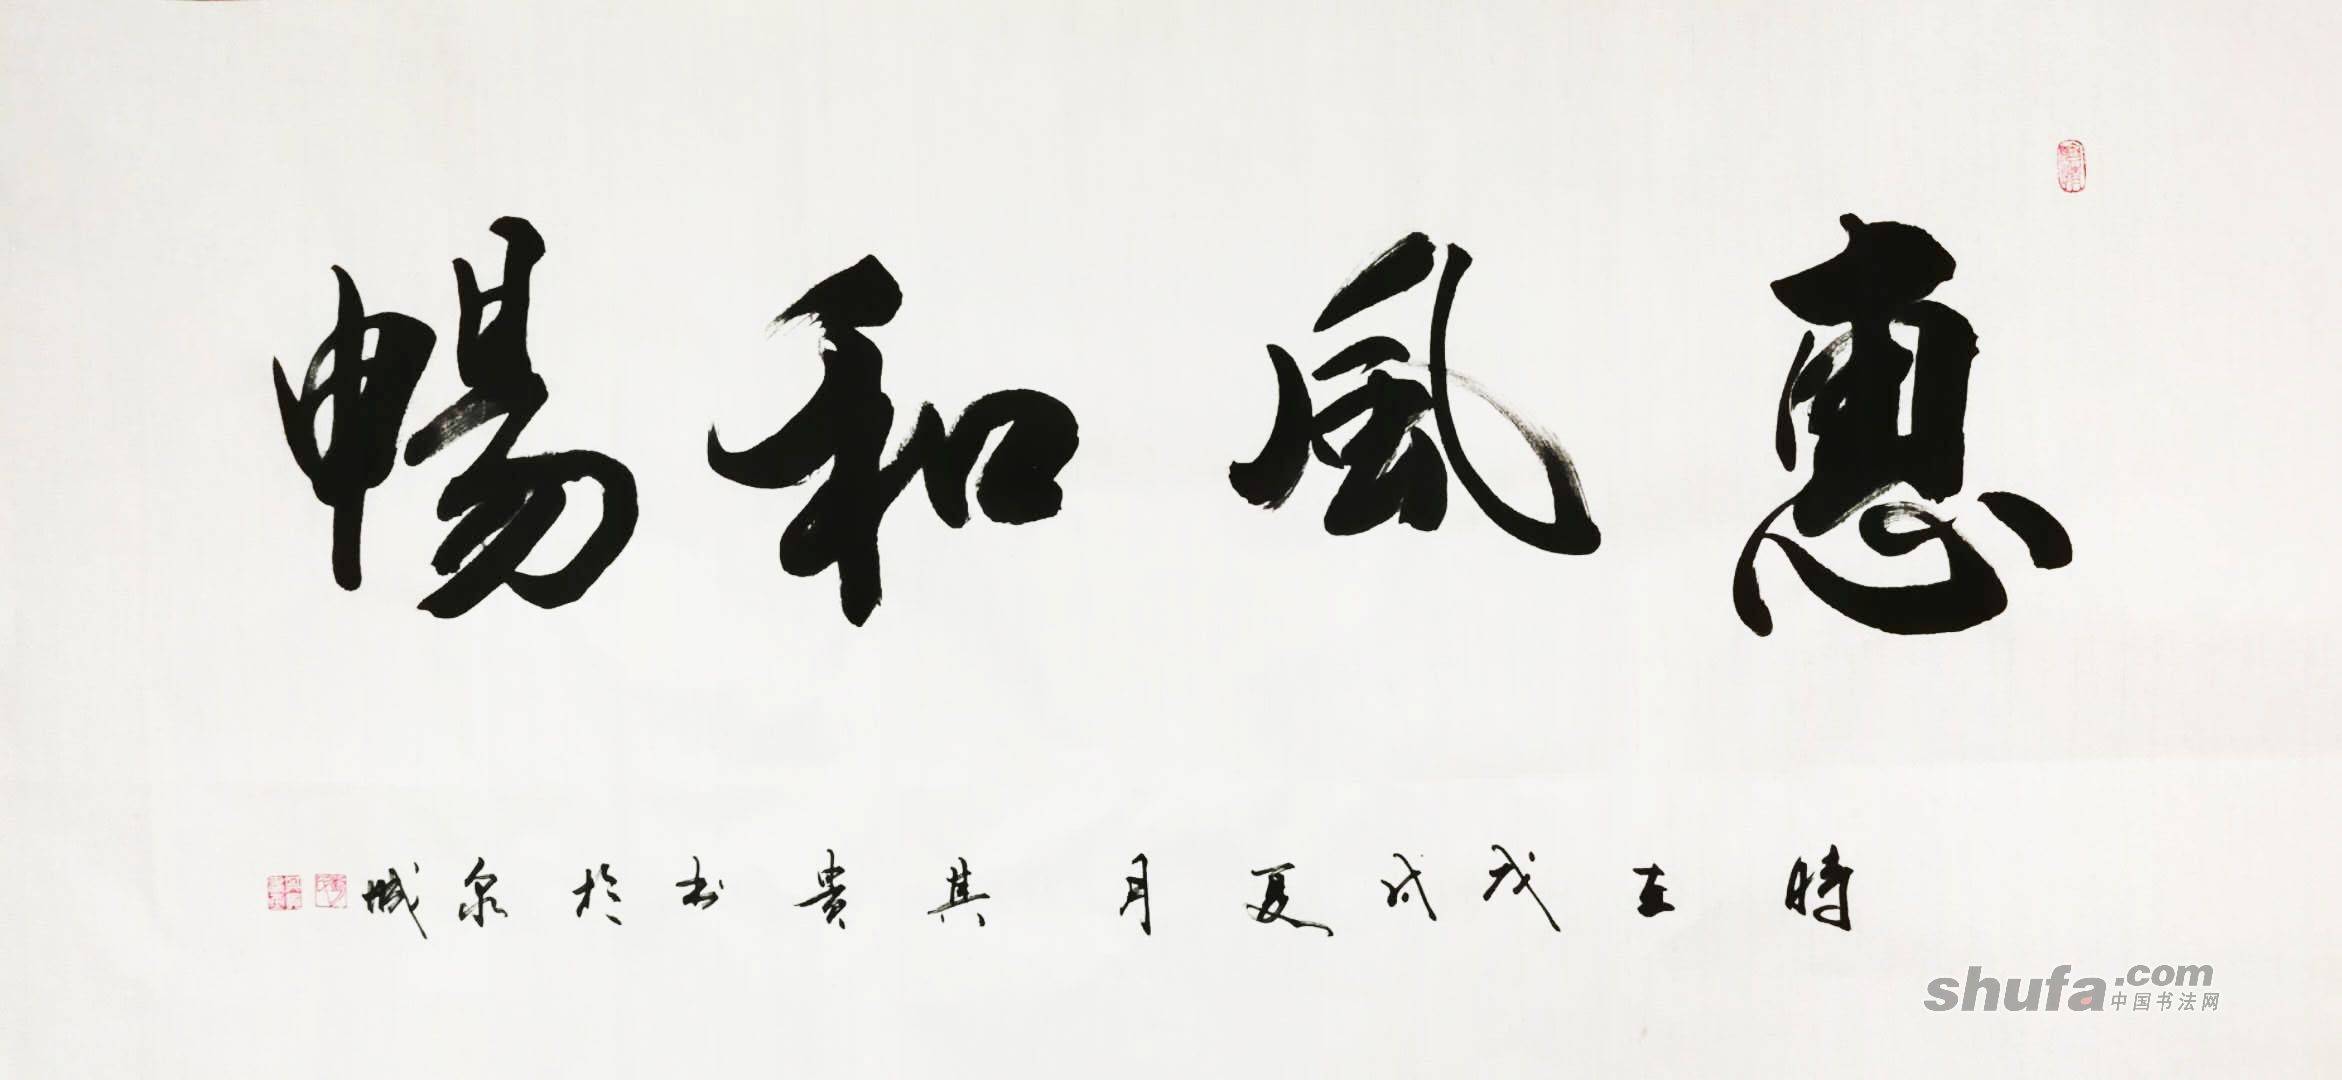 惠風和暢
時在戊戌夏月其貴书於泉城
shufa.com
中国书法网